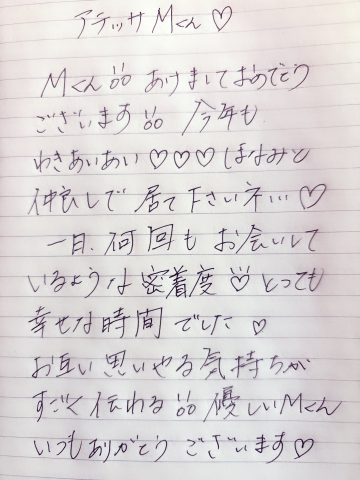 アテッサMくん♡
Mくん!!! あけましておめでとう
ございます!!! 今年も
わきあいあい♡♡♡ほなみと
仲良しで居て下さいネ…♡
一日、何回もお会いして
いるような密着度♡とっても
幸せな時間でした♡
お互い思いやる気持ちが
すごく伝わる!!! 優しいMくん
いつもありがとうございます♡